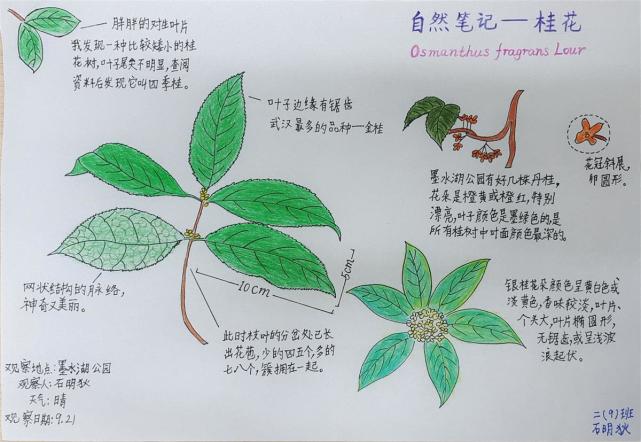 自然笔记—桂花
Osmanthus fragrans Lour
胖胖的对生叶片
我发现一种比较矮小的桂
花树,叶子尾尖不明显,查阅
资料后发现它叫四季桂。
叶子边缘有锯齿
武汉最多的品种—金桂
花冠斜展,
卵圆形。
墨水湖公园有好几株丹桂,
花朵是橙黄或橙红,特别
漂亮,叶子颜色是墨绿色的是
所有桂树中叶面颜色最深的。
网状结构的脉络,
神奇又美丽。
10cm
5cm
此时枝叶的分岔处已长
出花苞,少的四五个,多的
七八个,簇拥在一起。
银桂花朵颜色呈黄白色或
淡黄色,香味较淡,叶片
个头大,叶片椭圆形,
无锯齿,或呈浅波
浪起伏。
观察地点:墨水湖公园
观察人:石明狄
天气:晴
观察日期:9.21
二(9)班
石明狄